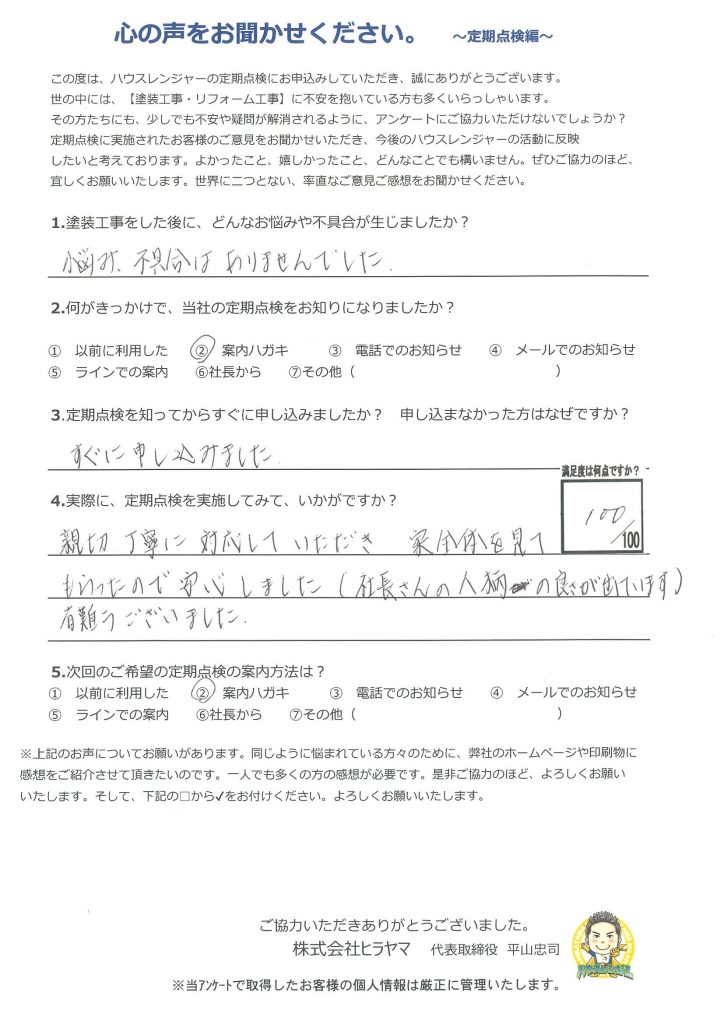 心の声をお聞かせください。　～定期点検編～
この度は、ハウスレンジャーの定期点検にお申込みしていただき、誠にありがとうございます。
世の中には、【塗装工事・リフォーム工事】に不安を抱いている方も多くいらっしゃいます。
その方たちにも、少しでも不安や疑問が解消されるように、アンケートにご協力いただけないでしょうか？
定期点検に実施されたお客様のご意見をお聞かせいただき、今後のハウスレンジャーの活動に反映
したいと考えております。よかったこと、嬉しかったこと、どんなことでも構いません。ぜひご協力のほど、
宜しくお願いいたします。世界に二つとない、率直なご意見ご感想をお聞かせください。
1.塗装工事をした後に、どんなお悩みや不具合が生じましたか？
悩み、不具合はありませんでした.
2.何がきっかけで、当社の定期点検をお知りになりましたか？
①　以前に利用した　②　案内ハガキ　③　電話でのお知らせ　④　メールでのお知らせ
⑤　ラインでの案内　⑥社長から　⑦その他（　　　　）
3.定期点検を知ってからすぐに申し込みましたか？　申し込まなかった方はなぜですか？
すぐに申し込みました.
満足度は何点ですか？
4.実際に、定期点検を実施してみて、いかがですか？
100/100
親切丁寧に対応していただき　家全体を見て
もらったので安心しました（社長さんの人柄の良さが出ています）
有難うございました.
5.次回のご希望の定期点検の案内方法は？
①　以前に利用した　②　案内ハガキ　③　電話でのお知らせ　④　メールでのお知らせ
⑤　ラインでの案内　⑥社長から　⑦その他（　　　　）
※上記のお声についてお願いがあります。同じように悩まれている方々のために、弊社のホームページや印刷物に
感想をご紹介させて頂きたいのです。一人でも多くの方の感想が必要です。是非ご協力のほど、よろしくお願い
いたします。そして、下記の□から✓をお付けください。よろしくお願いいたします。
ご協力いただきありがとうございました。
株式会社ヒラヤマ　代表取締役　平山忠司
※当ｱﾝｹｰﾄで取得したお客様の個人情報は厳正に管理いたします。